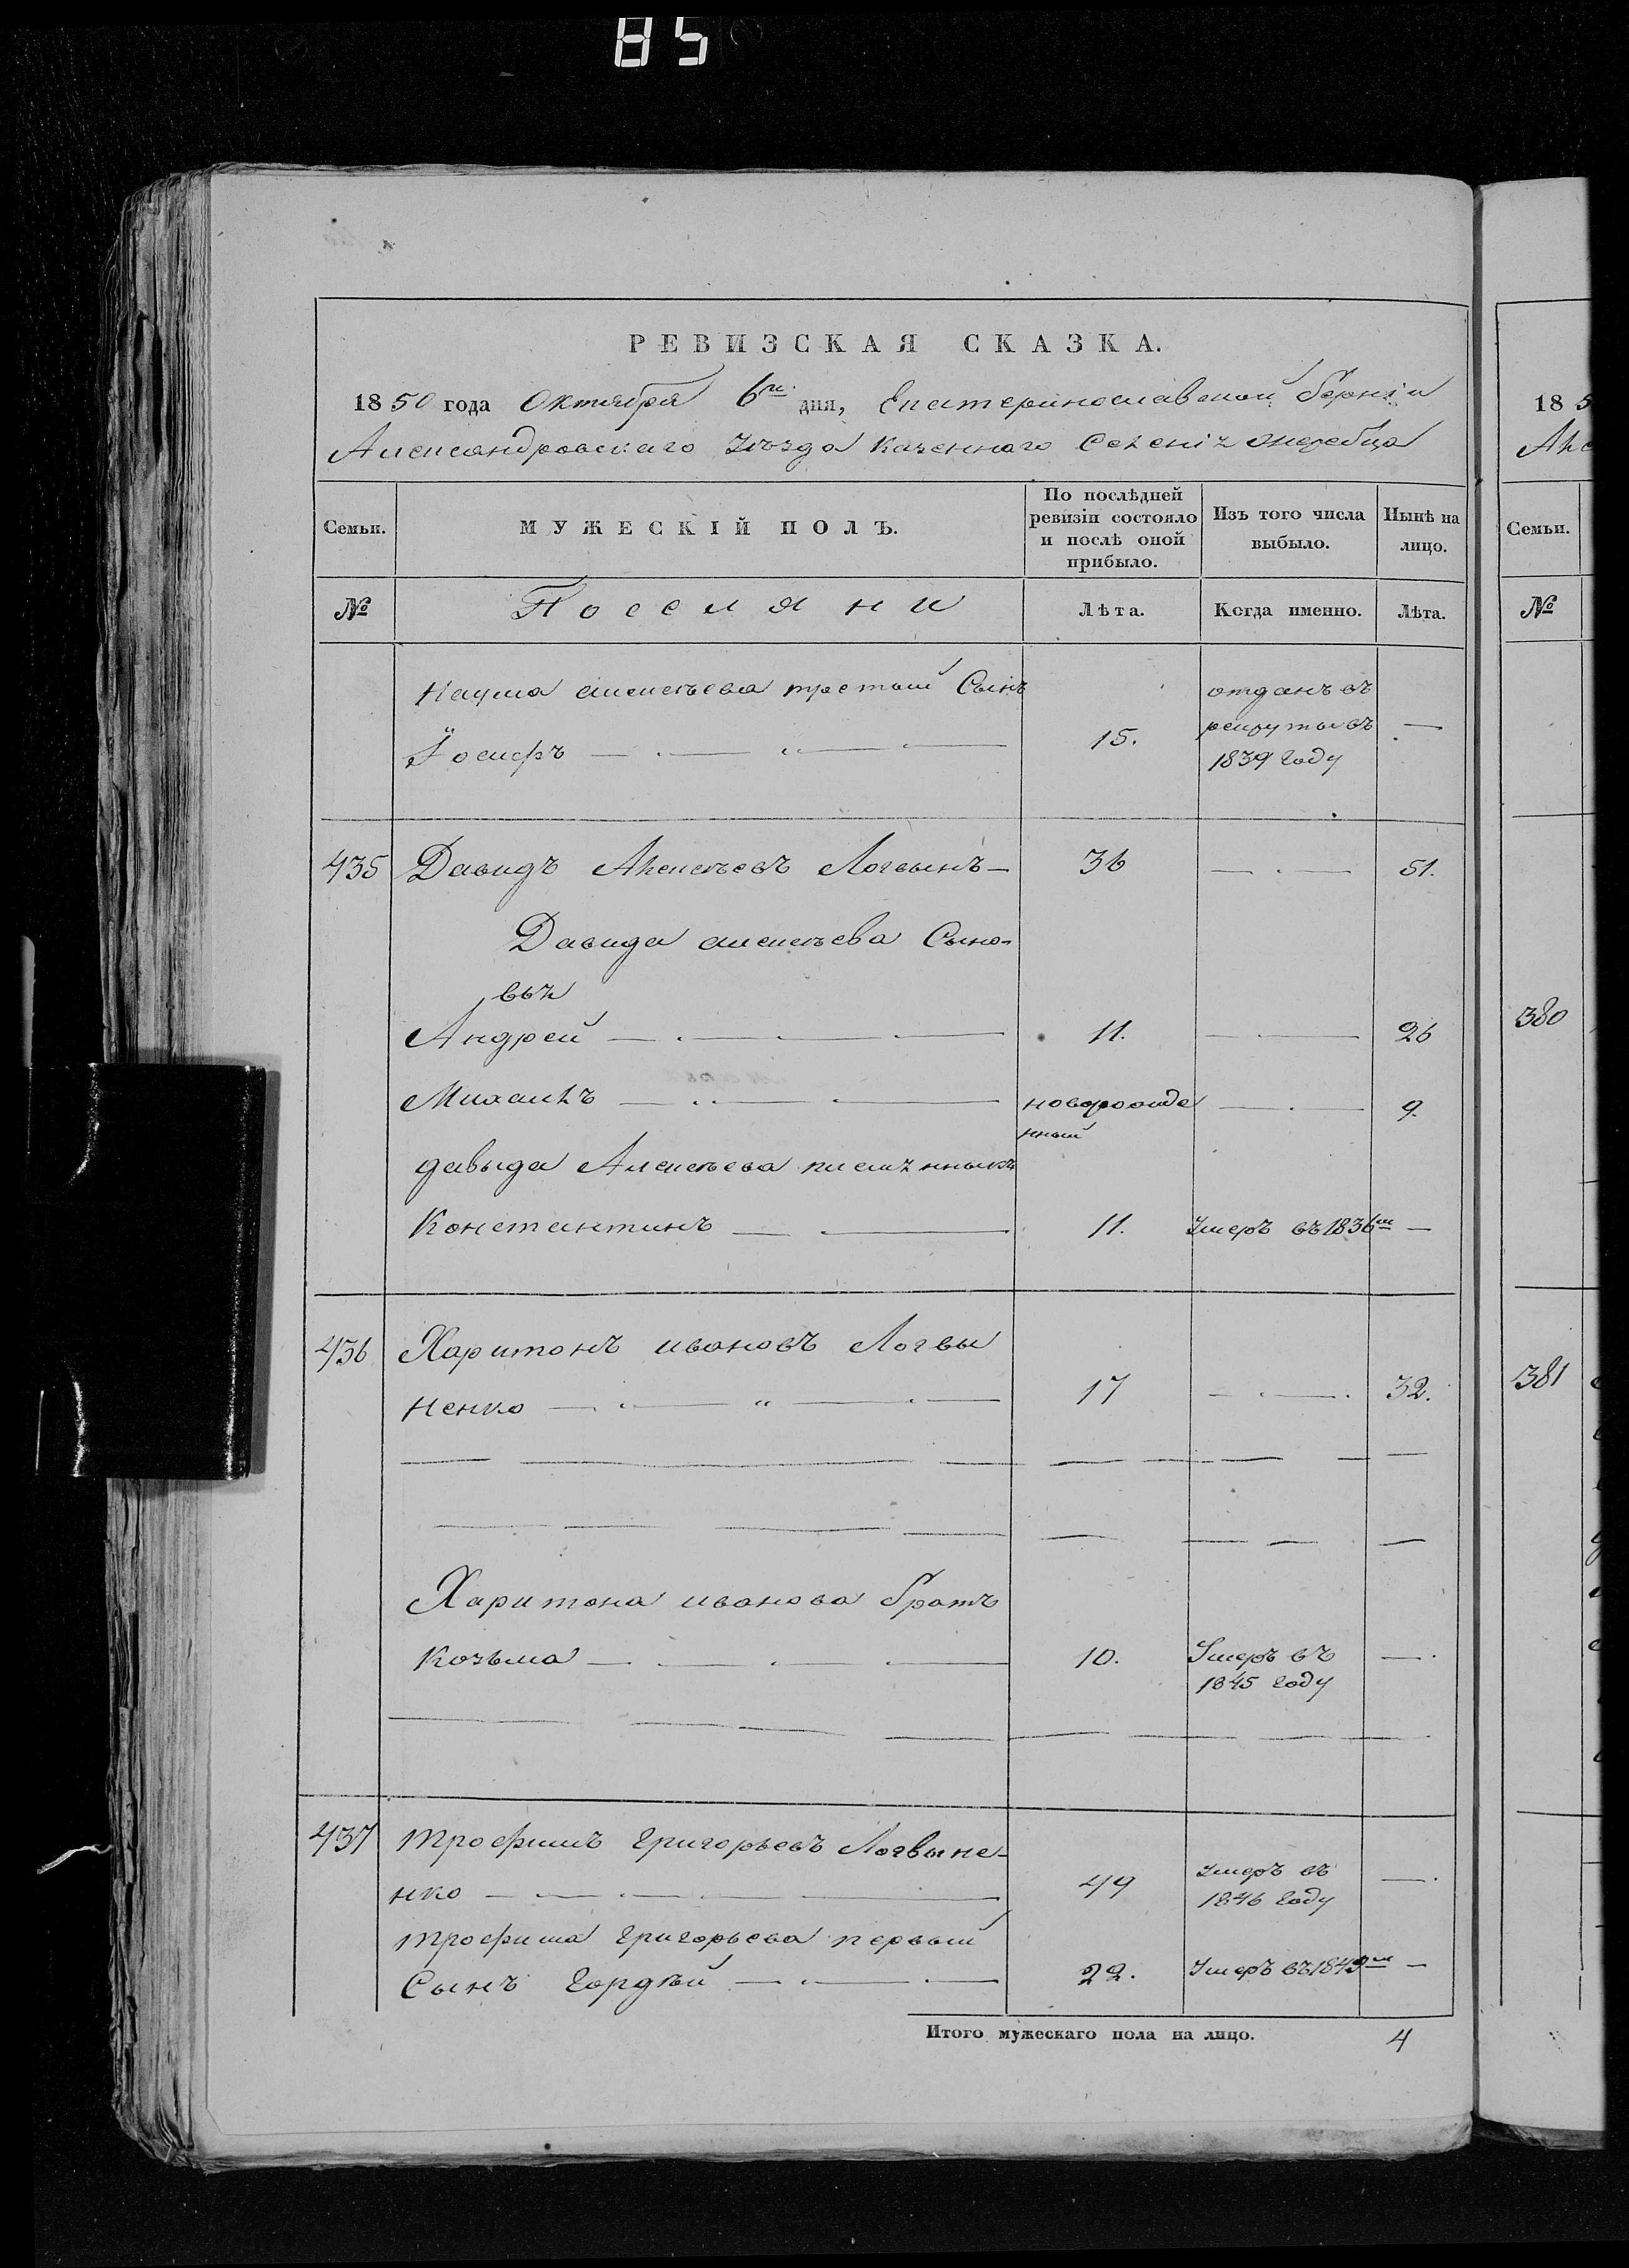 85
РЕВИЗСКАЯ СКАЗКА.
1850 года Октября 6го дня, Екатеринославской Губерніи
Александровскаго Уѣзда Казеннаго Селенія Жеребца
Семьи.
МУЖЕСКІЙ ПОЛЪ.
По послѣдней ревизіи состояло и послѣ оной прибыло.
Изъ того числа выбыло.
Нынѣ на лицо.
№
Поселяни
Лѣта.
Когда именно.
Лѣта.
Наума алексѣева третьій Сынъ отданъ въ
Іосифъ — 15. рекруты въ —
1839 году
435 Давидъ Алексѣевъ Логвынъ — 36 — 51.
Давида алексѣева Сыно-
вья
Андрей — 11. — 26
Михаилъ — новорожде — 9.
нный
давыда Алексѣева племянныкъ
Константинъ — 11. Умеръ въ 1836м —
436 Харитонъ ивановъ Логвы
ненко — 17 — 32.
Харитона иванова братъ
Козьма — 10. Умеръ въ —
1845 году
437 трофимъ григорьевъ Логвыне-
нко — 49 Умеръ въ —
1846 году
трофима григорьева первый
Сынъ гордѣй — 22. Умеръ въ 1849м —
Итого мужескаго пола на лицо. 4
18 5
Але
Семьи.
№
380
381